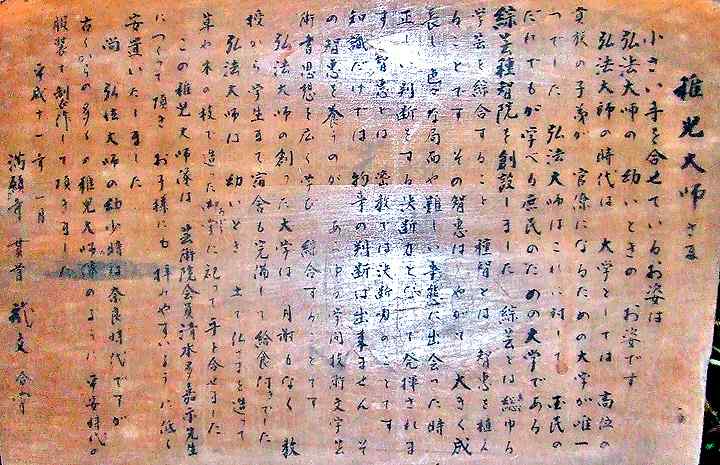 稚児大師さま
小さい手を合せているお姿は
弘法大師の 幼いときの お姿です
弘法大師の時代は 大学としては 高位の
貴族の子弟が 官僚になるための大学が唯一
つでした 弘法大師はこれに対して 庶民の
だれでもが学べる庶民のための大学である
綜芸種智院を創設しました 綜芸とは総ゆる
学芸を綜合すること 種智とは 智恵を植え
ることです その智恵は やがて 大きく成
長し 色々な局面や難しい事態に出会った時
正しい判断をする決断力となって発揮されま
す 智恵とは 密教では決断力のことです
知識だけでは 物事の判断は出来ません そ
の智恵を養うのが あらゆる学問技術文学芸
術書思想を広く学び 綜合することです
弘法大師の創った大学は 月謝もなく 教
授から学生まで宿舎も完備して給食付きでした
弘法大師は 幼いとき 土で仏さまを造って
草や木の枝で造った御堂に祀って手を合せました
この稚児大師像は 芸術院会員清水多嘉示先生
につくって頂き お子様にも 拝みやすいように低く
安置いたしました
尚 弘法大師の幼少時は奈良時代ですが
古くからの多くの稚児大師像のように 平安時代の
服装で制作して頂きました
平成十一年 一月
満願寺 貫首